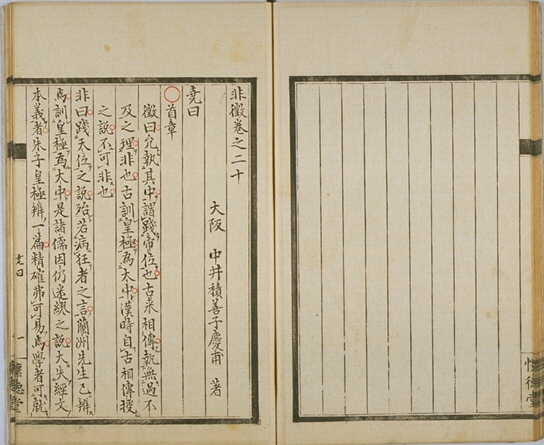 非徵卷之二十
大阪 中井積善子慶甫 著
堯曰
○首章
徵曰允執其中謂踐帝位也古來相傳執無過不
及之理非也古訓皇極為大中漢時自古相傳授
之說不可非也
非曰踐天位之說殆若病狂者之言蘭洲先生已辨
焉訓皇極為大中是諸儒因仍迷繆之說大失經文
本義者朱子皇極辨一篇精確弗可易焉學者可就
堯曰 一
懷德堂
懷德堂